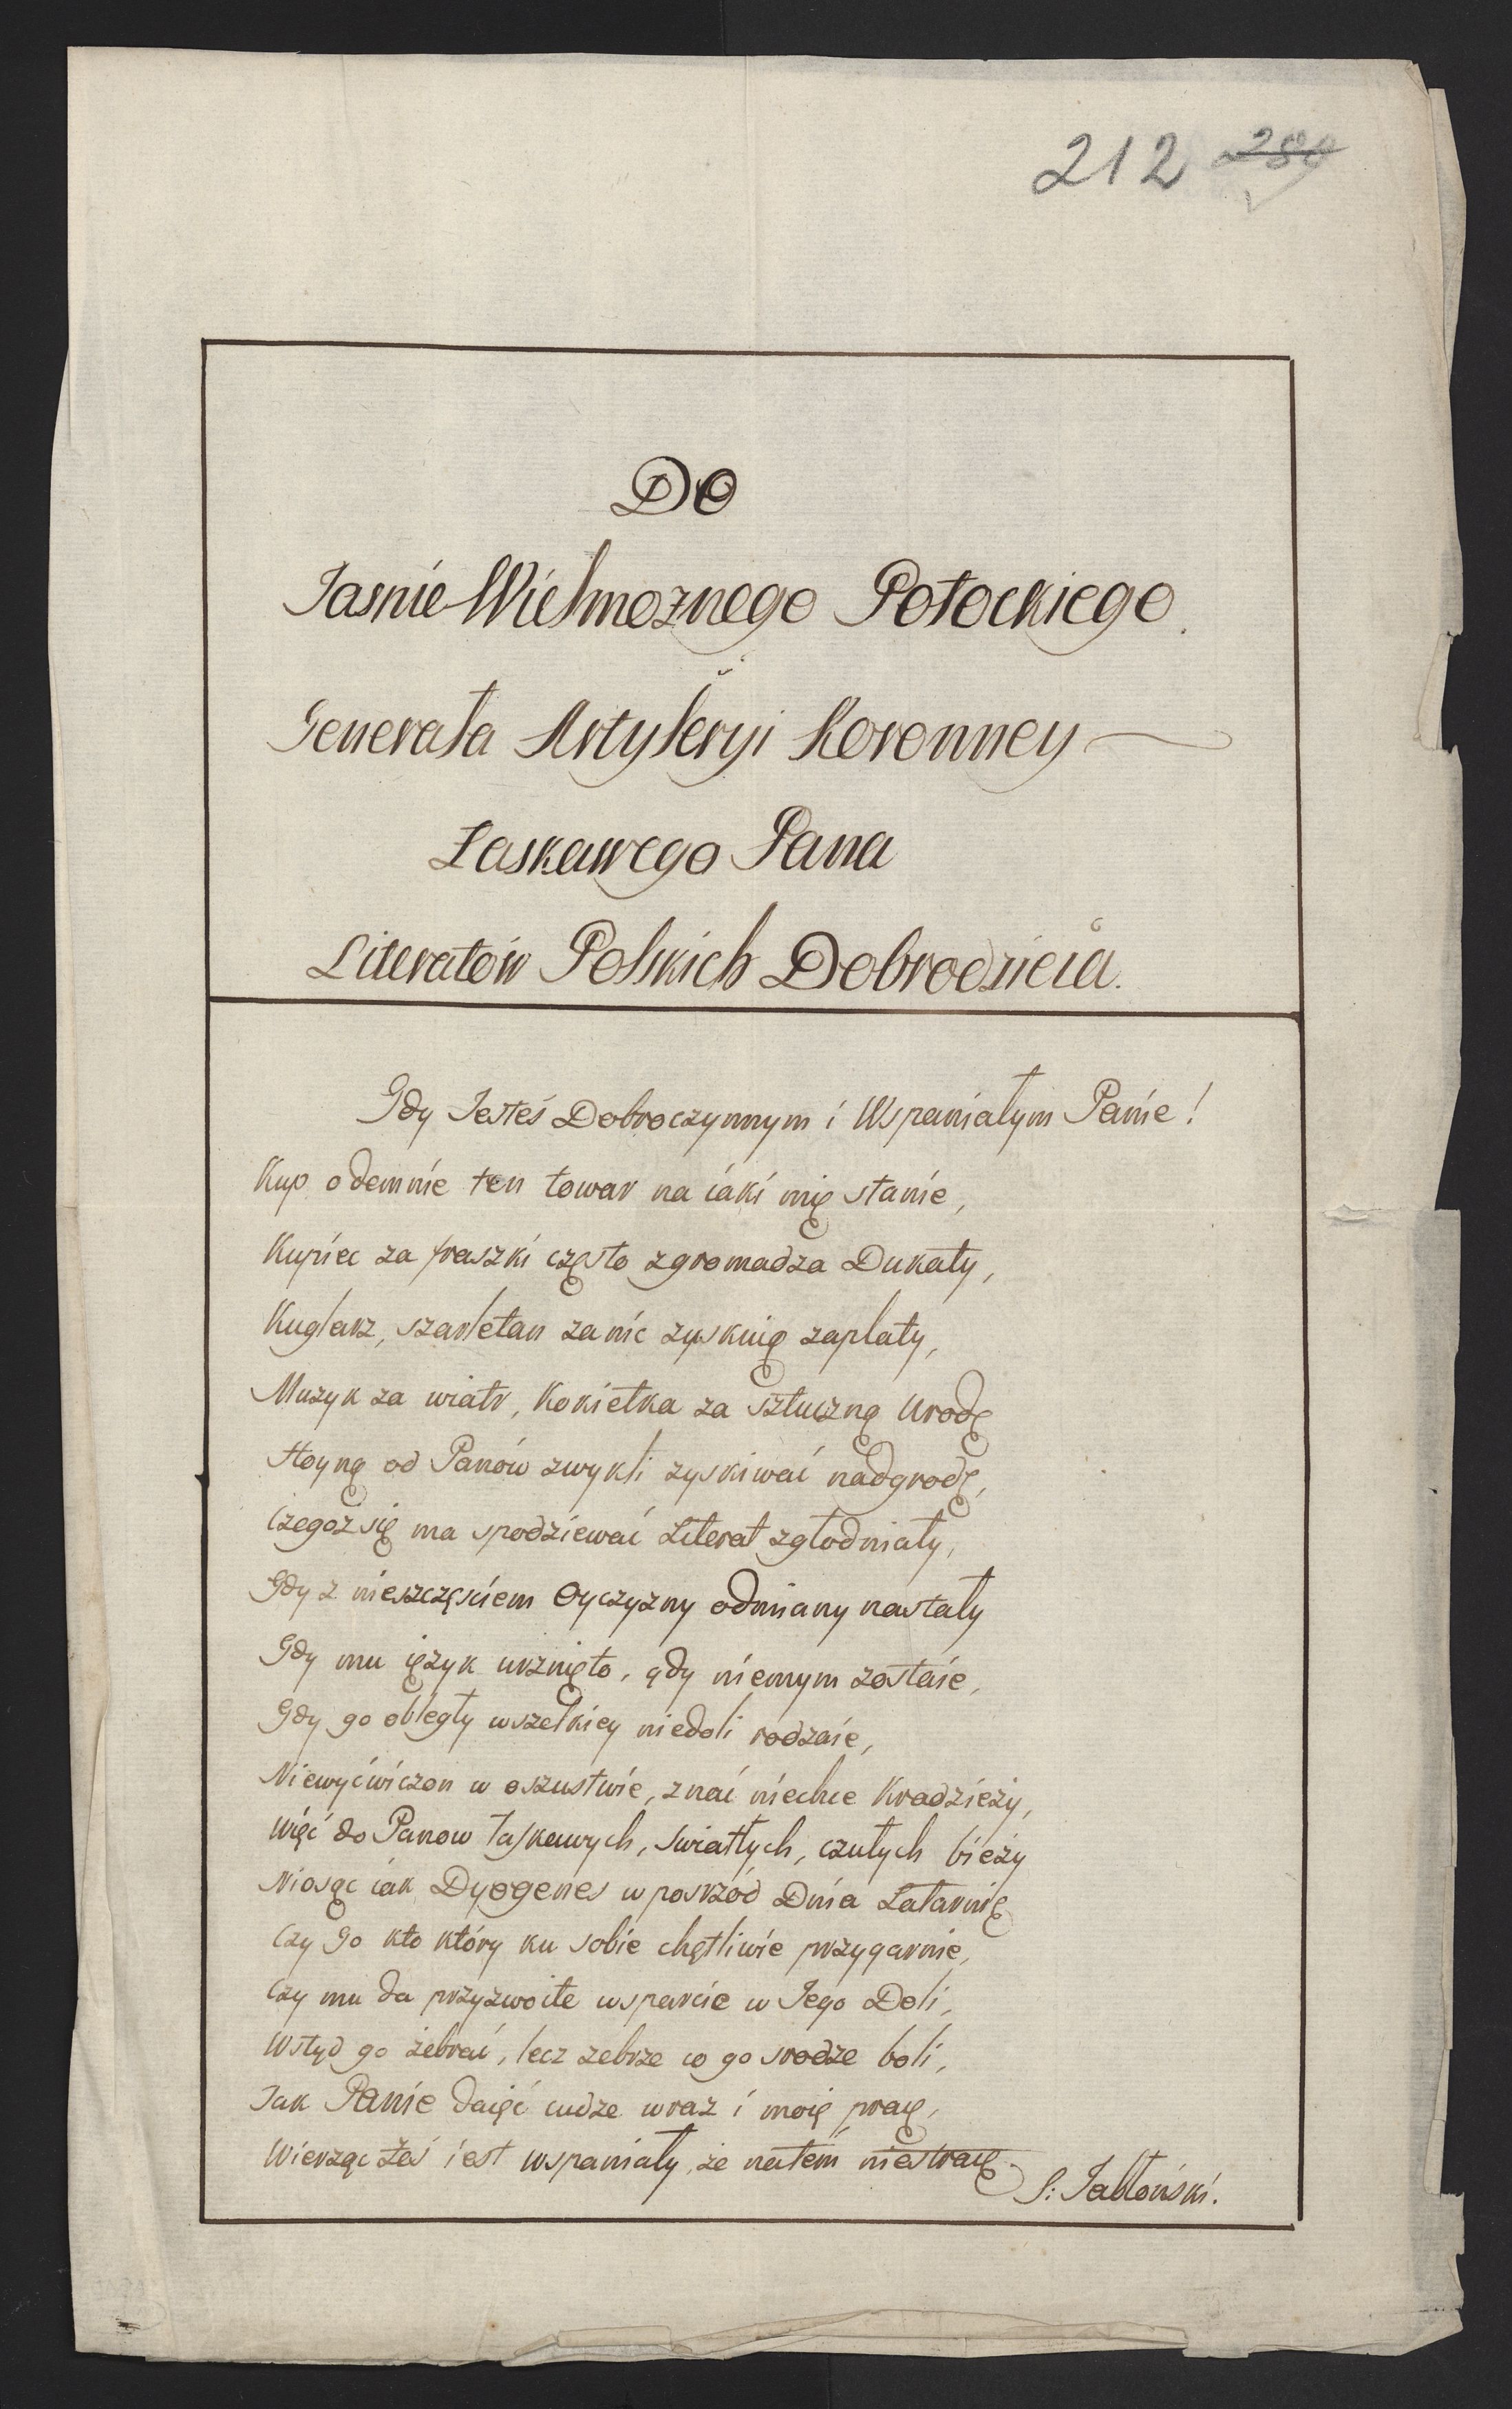 212 280
Do
Jasnie Wielmoznego Potockiego.
Generała Artyleryi Koronney
Łaskawego Pana
Literatów Polskich Dobrodzieia.
Gdy Jesteś Dobroczynnym i Wspaniałym Panie!
Kup odemnie ten towar na iaki mię stanie,
Kupiec za fraszki często zgromadza Dukaty,
Kuglarz, szarletan za nic zyskuię zapłaty,
Muzyk za wiatr, Kokietka za sztuczną Urodę
Hoyną od Panów zwykli zyskiwać nadgrodę,
Czegoz się ma spodziewać Literat zgłodniały,
Gdy z nieszczęściem Oyczyzny odmiany nastały
Gdy mu ięzyk urznięto, gdy niemym zostaie,
Gdy go obległy wszelkiey niedoli rodzaie,
Niewyćwiczon w oszustwie, znać niechce Kradzieży,
Więć do Panow łaskawych, swiatłych, czułych bieży
Niosąc iak Dyogenes w poskzód Dnia Latarnię
Czy go kto który ku sobie chętliwie przygarnie,
Czy mu da przyzwoite wsparcie w Jego Doli,
Wstyd go żebrać, lecz zebrze co go srodze boli,
Jak Panie daięć cudze wraz i moię pracę,
Wierząc żeś iest wspaniały, że natem niestracę.
S: Jabłoński.